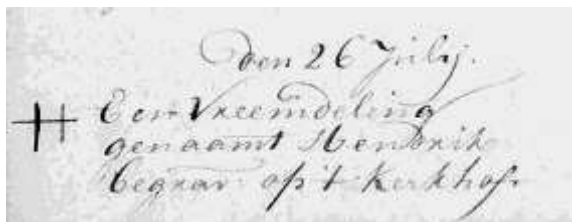 den 26 Julij.
Een Vreemdeling
genaamt Hendrik
begrav: op 't Kerkhof.